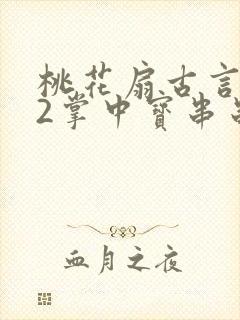 桃花扇古言
2掌中寶串
血月之夜